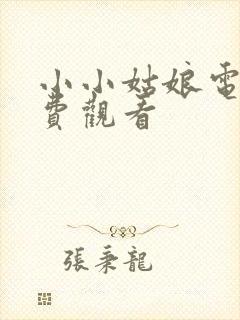 小小姑娘電
費觀看
張秉龍